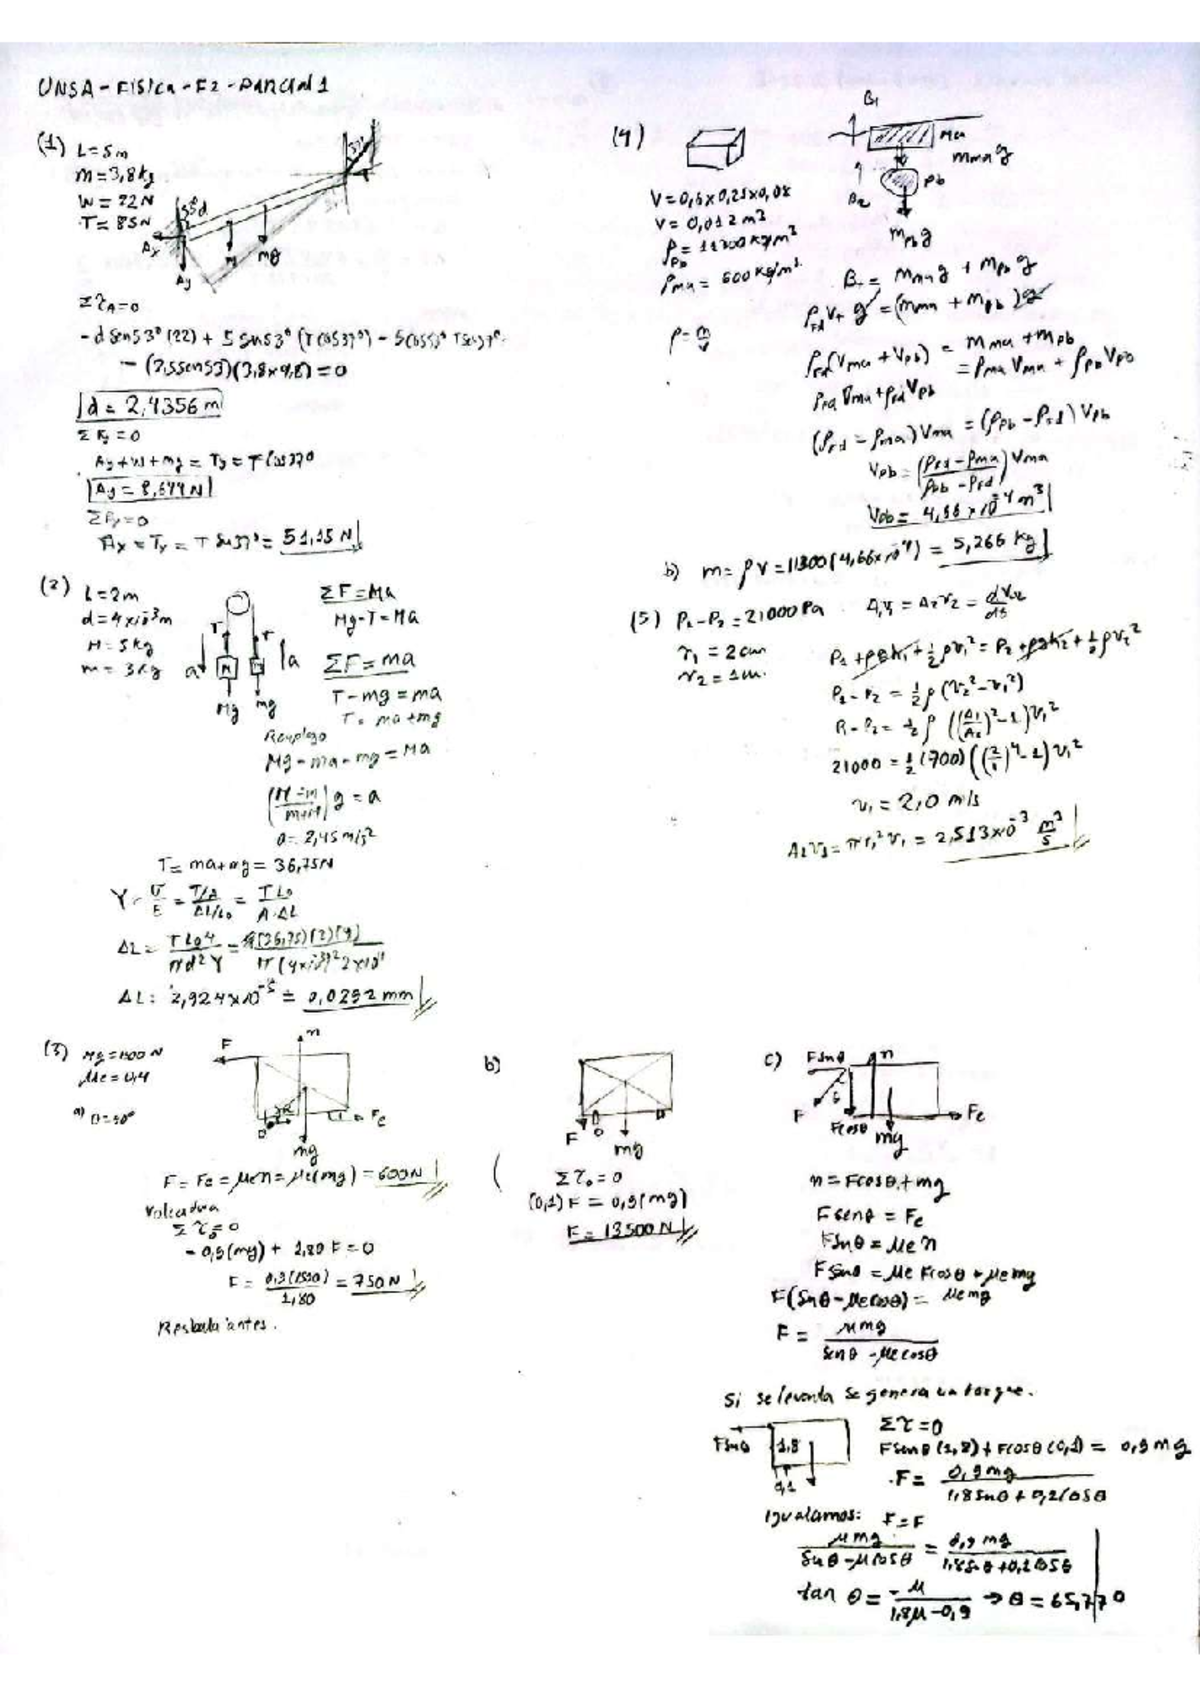 UNSA - FISICA - F2 - PARCIAL 1
(1) L = 5m
m = 3,8 kg
W = 22 N
T = 85N
53° d
37°
Ax
Ay
mg
Σ τA = 0
- d sen53° (22) + 5 sen53° (T cos37°) - 5 cos53° T sen37°
- (2,5 sen53)(3,8×9,8) = 0
d = 2,4356 m
Σ Fy = 0
Ay + W + mg = Ty = T cos37°
Ay = 8,644 N
Ax = Tx = T sen37° = 51,15 N
(2) L = 2m
d = 4×10⁻³m
M = 5 kg
m = 3 kg
T
T
a
a
M
m
Mg
mg
ΣF = Ma
Mg - T = Ma
ΣF = ma
T - mg = ma
T = ma + mg
Reemplazo
Mg - ma - mg = Ma
(M - m / m+M) g = a
a = 2,45 m/s²
T = ma + mg = 36,75N
Y = σ/ε = (T/A)/(ΔL/L₀) = T L₀ / A·ΔL
ΔL = T L₀ 4 / πd²Y = (36,75)(2)(4) / π (4×10⁻³)² 2×10¹¹
ΔL = 2,924×10⁻⁵ = 0,0292 mm
(3) Mg = 1500 N
μe = 0,4
a) θ = 90°
F
n
Fe
mg
F = Fe = μe n = μe(mg) = 600N
Volcadura
Σ τ₀ = 0
- 0,9(mg) + 1,80 F = 0
F = 0,9(1500) / 1,80 = 750 N
Resbala antes.
b)
F
O
mg
Σ τ₀ = 0
(0,1) F = 0,9(mg)
F = 13500 N
c) Fsenθ
n
F
Fcosθ
mg
Fe
n = Fcosθ + mg
F senθ = Fe
F senθ = μe n
F senθ = μe Fcosθ + μe mg
F(senθ - μe cosθ) = μe mg
F = μmg / senθ - μe cosθ
Si se levanta se genera un torque.
Fsenθ
1,8
0,1
Στ = 0
Fsenθ (1,8) + Fcosθ (0,1) = 0,9 mg
F = 0,9mg / 1,8 senθ + 0,2 cosθ
Igualamos: F = F
μmg / senθ - μcosθ = 0,9 mg / 1,8senθ + 0,2 cosθ
tan θ = - μ / 1,8μ - 0,9 → θ = 65,77°
(4)
V = 0,6×0,25×0,08
V = 0,012 m³
ρPb = 11300 kg/m³
ρma = 600 kg/m³
ρ = m/v
B₁
Ma
mma g
B₂
Pb
mPb g
BT = mma g + mPb g
ρfd VT g = (mma + mPb) g
ρfd (Vma + VPb) = mma + mPb
= ρma Vma + ρPb VPb
ρfd Vma + ρfd VPb
(ρfd - ρma) Vma = (ρPb - ρfd) VPb
VPb = (ρfd - ρma / ρPb - ρfd) Vma
VPb = 4,66×10⁻⁴ m³
b) m = ρV = 11300(4,66×10⁻⁴) = 5,266 kg
(5) P₁ - P₂ = 21000 Pa
r₁ = 2 cm
r₂ = 1 cm
A₁v₁ = A₂v₂ = dV/dt
P₁ + ρgh₁ + ½ρv₁² = P₂ + ρgh₂ + ½ρv₂²
P₁ - P₂ = ½ρ (v₂² - v₁²)
P₁ - P₂ = ½ρ ((A₁/A₂)² - 1) v₁²
21000 = ½(700) ((2/1)⁴ - 1) v₁²
v₁ = 2,0 m/s
A₁v₁ = π r₁² v₁ = 2,513×10⁻³ m³/s